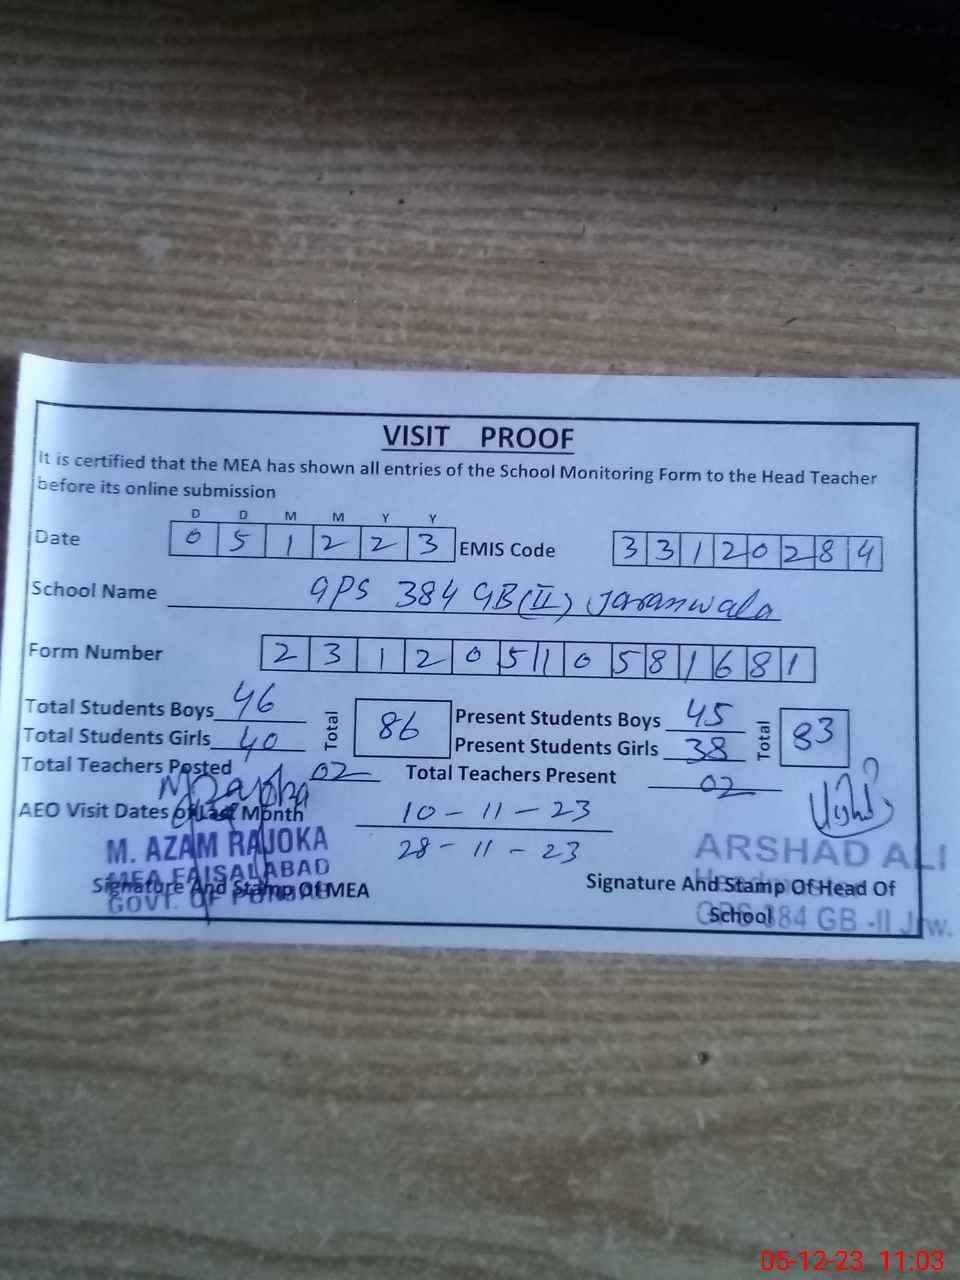 VISIT PROOF
It is certified that the MEA has shown all entries of the School Monitoring Form to the Head Teacher
before its online submission
D D M M Y Y
Date 0 5 1 2 2 3 EMIS Code 3 3 1 2 0 2 8 4
School Name GPS 384 GB (II) Jaranwala
Form Number 2 3 1 2 0 5 1 0 5 8 1 6 8 1
Total Students Boys 46 Total 86 Present Students Boys 45 Total 83
Total Students Girls 40 Present Students Girls 38
Total Teachers Posted 02 Total Teachers Present 02
AEO Visit Dates of Last Month 10 - 11 - 23
28 - 11 - 23
M. AZAM RAJOKA
MEA FAISALABAD
GOVT. OF PUNJAB
Signature And Stamp Of MEA
ARSHAD ALI
Headmaster
GPS 384 GB -II Jrw.
Signature And Stamp Of Head Of
School
05-12-23 11:03